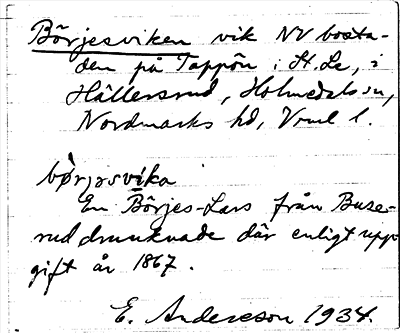 Börjesviken vik NV bosta-
den på Tappön i St. Le, i
Hällersrud, Holmedals sn,
Nordmarks hd, Vrml l.
bö̀rjəsvika
En Börjes-Lars från Buse-
rud drunknade där enligt upp-
gift år 1867.
E. Andersson 1934.